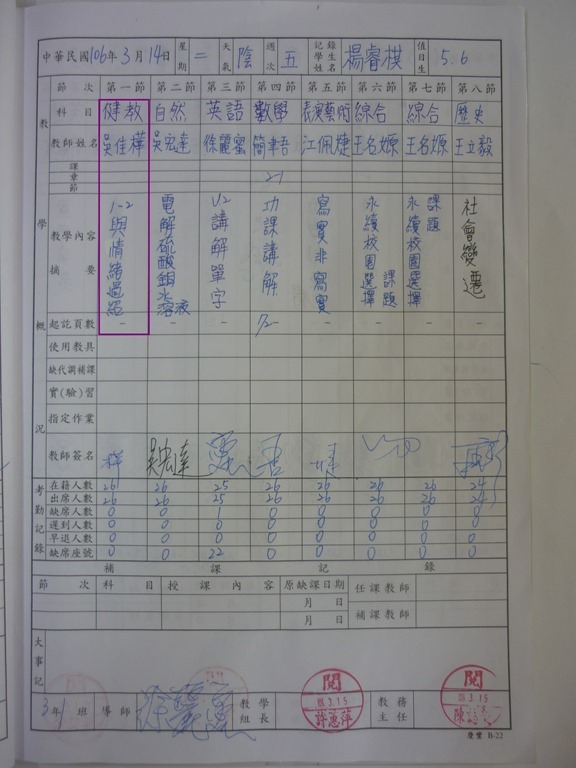 中華民國106年3月14日 星期二 天氣陰 週次五 記錄學生姓名楊睿樸 值日生5.6
節次 第一節 第二節 第三節 第四節 第五節 第六節 第七節 第八節
科目 健教 自然 英語 數學 表演藝術 綜合 綜合 歷史
教師姓名 吳佳樺 吳宏達 徐麗蜜 簡聿吾 江佩婕 王名嫄 王名嫄 王立毅
課
章 2-1
節
教學內容摘要 1-2與情緒過招 電解硫酸銅水溶液 U2講解單字 功課講解 寫實非寫實 永續校園選擇課題 永續校園選擇課題 社會變遷
教學概況
起訖頁數 - - - - - - -
使用教具
缺代調補課
實(驗)習
指定作業
教師簽名 樺 吳宏達
考勤記錄
在籍人數 26 26 25 26 26 26 26 24
出席人數 26 26 25 26 26 26 26 24
缺席人數 0 0 1 0 0 0 0 0
遲到人數 0 0 0 0 0 0 0 0
早退人數 0 0 0 0 0 0 0 0
缺席座號 0 0 22 0 0 0 0 0
補課記錄
節次 科目 授課內容 原缺課日期 任課教師
月 日
月 日 補課教師
大事記
3年 班 導師 教學組長 閱 3.15 許惠萍 教務主任 閱 3.15 陳
慶豐 B-22